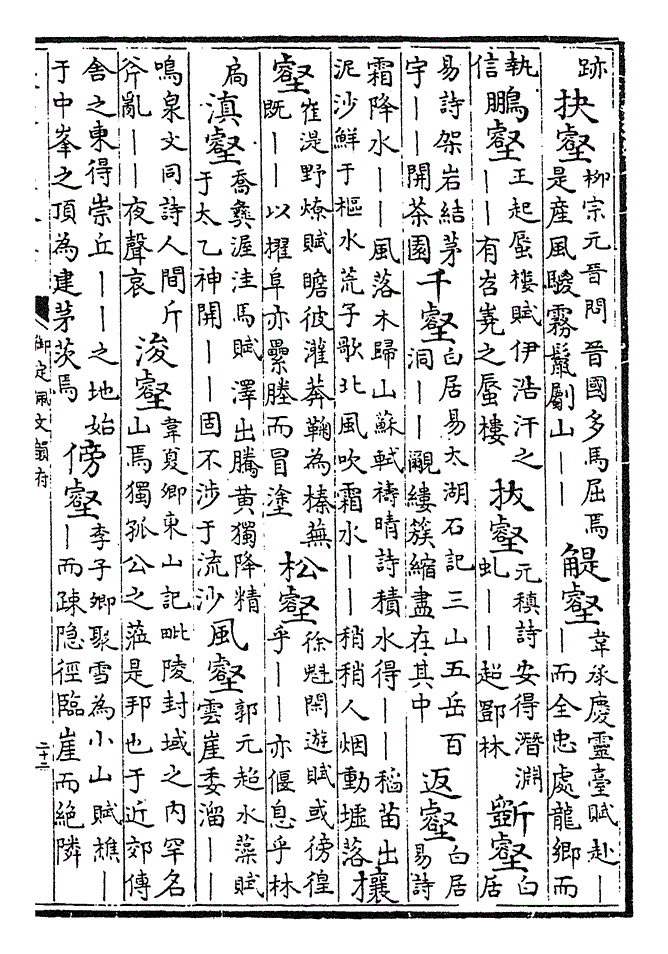 跡抉壑柳宗元晉問晉國多馬屈焉是産風驋霧鬛劚山——鯷壑韋承慶靈臺賦赴——而全忠處龍鄉而
執信鵬壑王起蜃樓賦伊浩汗之——有岧嶤之蜃樓拔壑元稹詩安得潛淵虬——超鄧林斲壑白居
易詩架岩結茅宇——開茶園千壑白居易太湖石記三山五岳百洞——覼縷簇縮盡在其中返壑白居易詩
霜降水——風落木歸山蘇軾禱晴詩積水得——稻苗出泥沙鮮于樞水荒子歌北風吹霜水——稍稍人烟動墟落攘
壑崔湜野燎賦瞻彼灌莽鞠為榛蕪既——以櫂阜亦纍塍而冒塗松壑徐魁閑遊賦或徬徨乎——亦偃息乎林
扃滇壑喬彝渥洼馬賦澤出騰黄獨降精于太乙神開——固不涉于流沙風壑郭元超水藻賦雲崖委溜——
鳴泉文同詩人間斤斧亂——夜聲哀浚壑韋夏卿東山記毗陵封域之内罕名山焉獨孤公之蒞是邦也于近郊傳
舍之東得崇丘——之地始于中峯之頂為建茅茨焉傍壑李子卿聚雪為小山賦樵——而疎隐徑臨崖而絶隣
御定佩文韻府
二十二